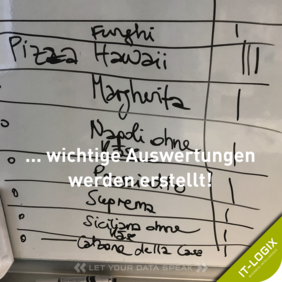 Funghi I
Pizza Hawaii III
Margherita I
Napoli ohne
... wichtige Auswertungen
werden erstellt!
Suprema I
Siciliana ohne I
Käse
della Casa I
LET YOUR DATA SPEAK
IT-LOGIX